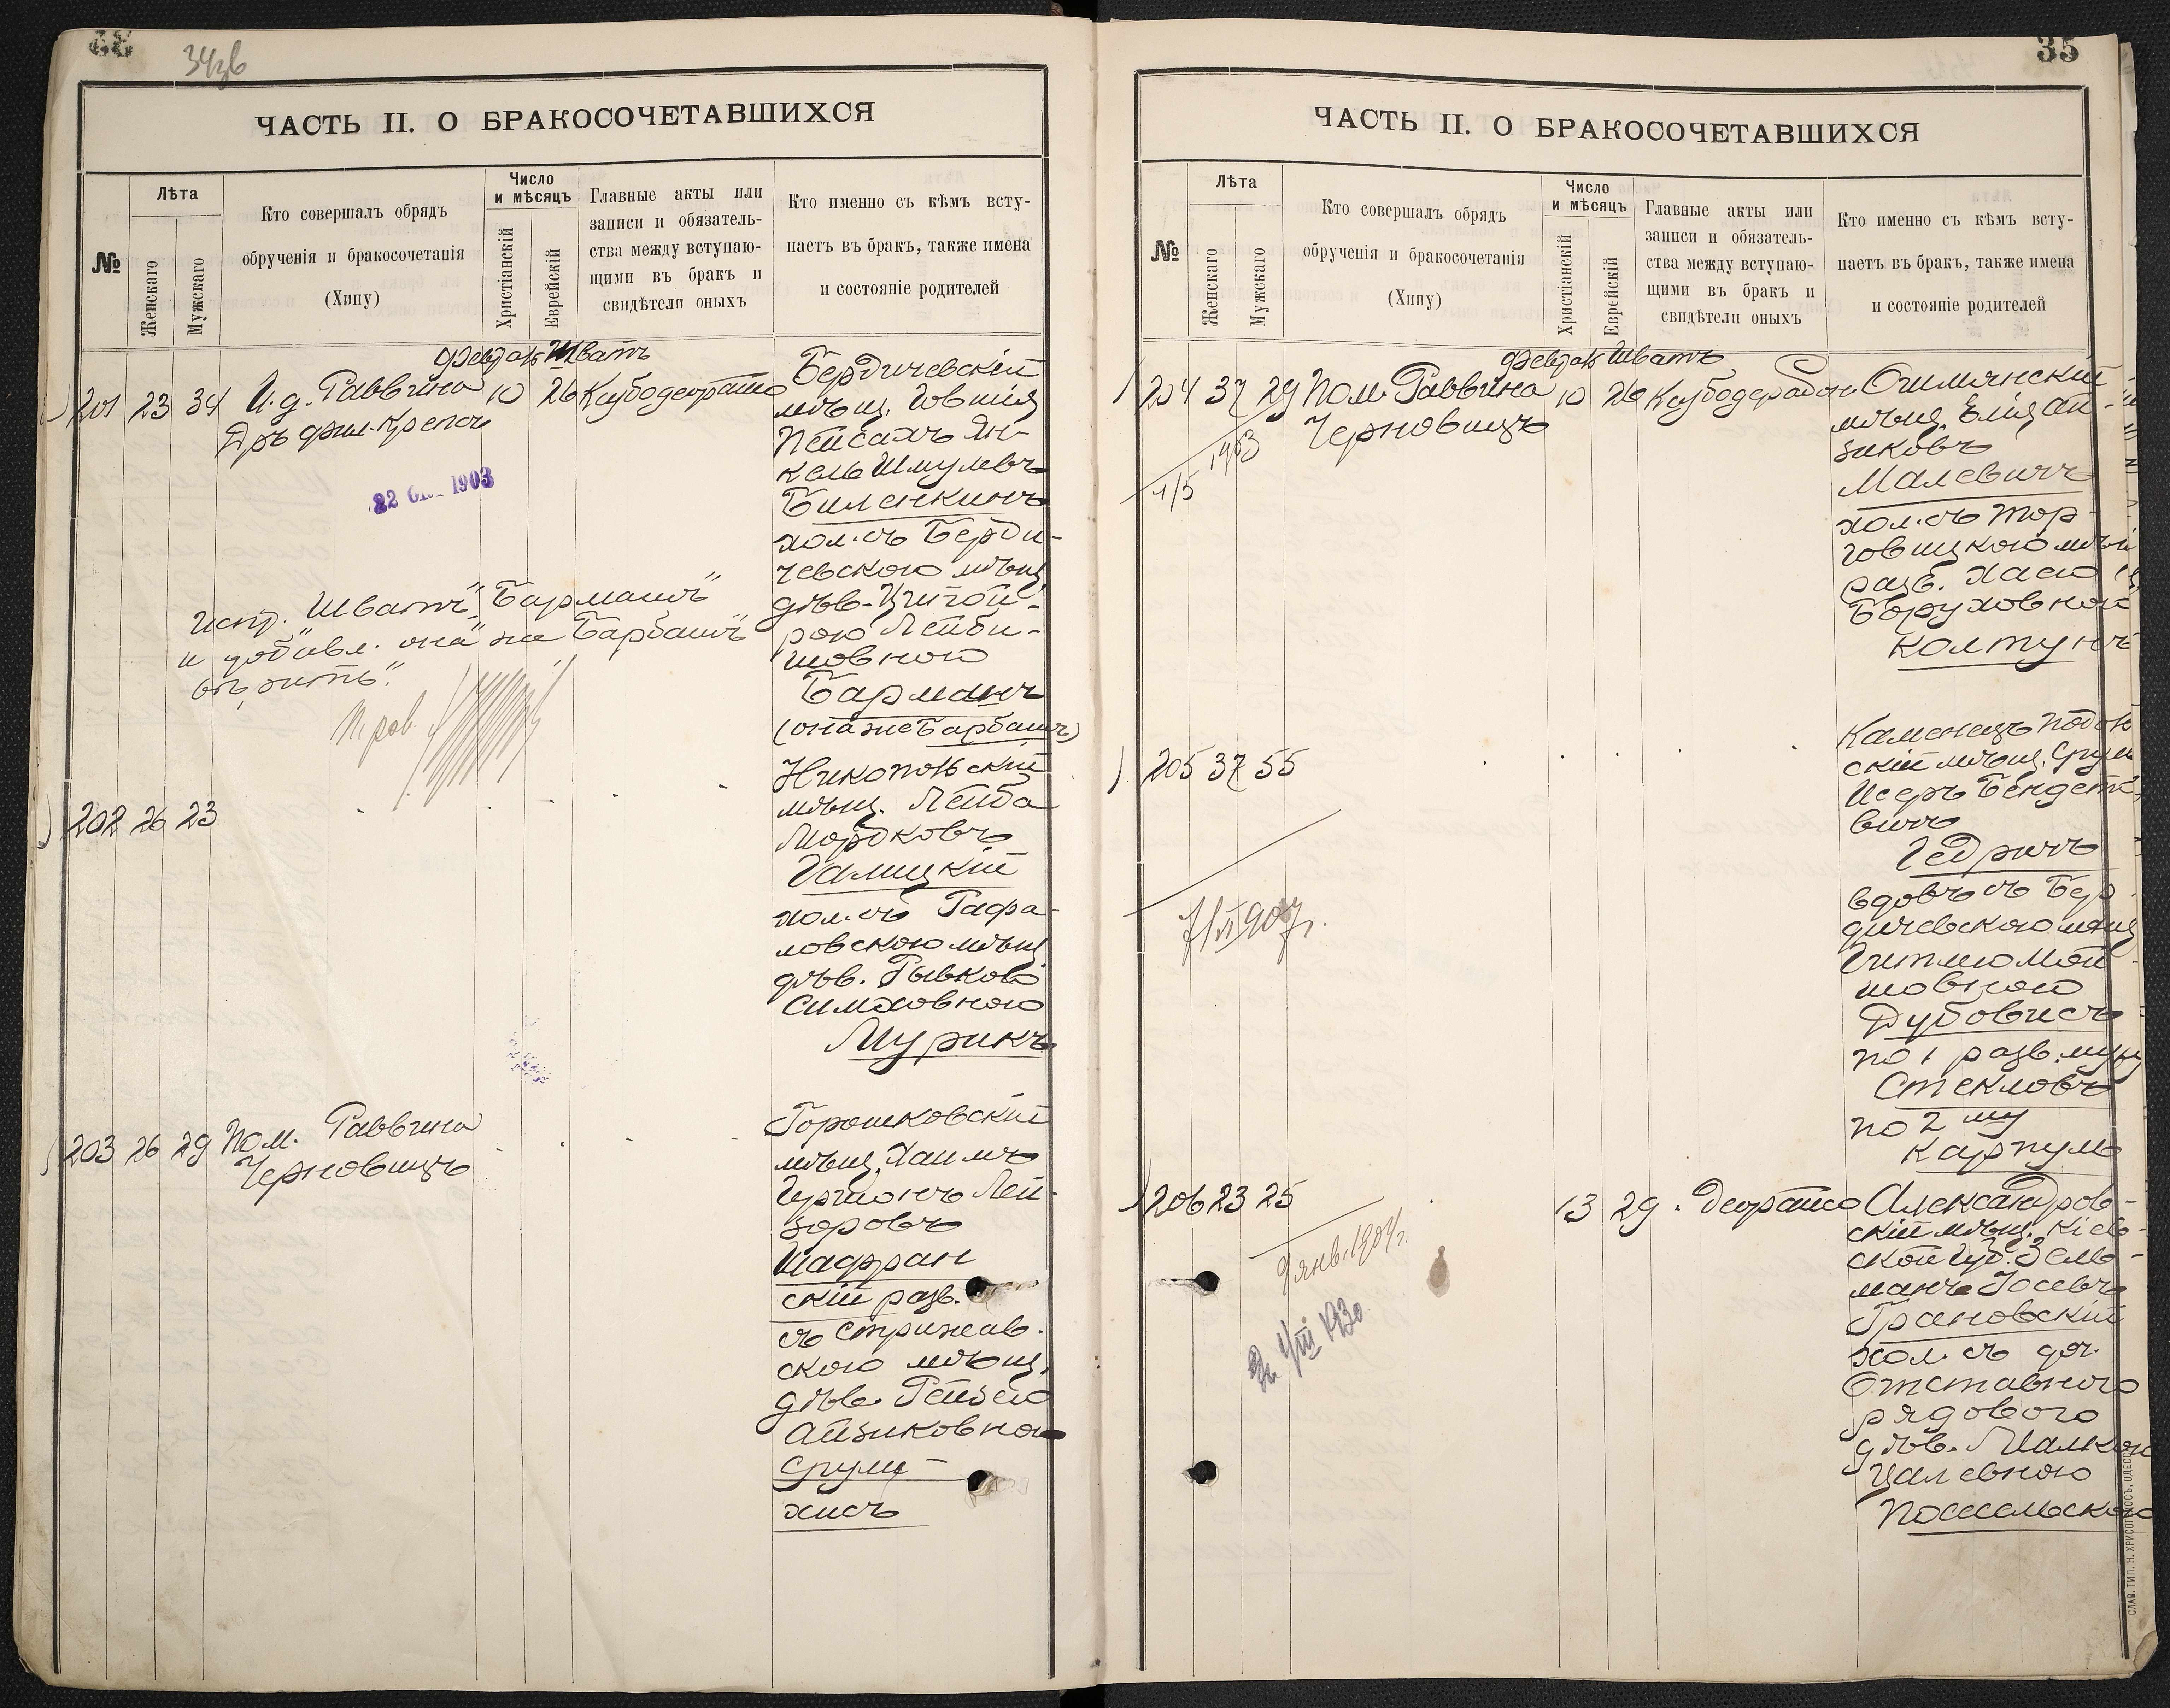 34зв
ЧАСТЬ II. О БРАКОСОЧЕТАВШИХСЯ
№
Лѣта
Женскаго
Мужскаго
Кто совершалъ обрядъ
обрученія и бракосочетанія
(Хипу)
Число
и мѣсяцъ
Христіанскій
Еврейскій
Главные акты или
записи и обязатель-
ства между вступаю-
щими въ бракъ и
свидѣтели оныхъ
Кто именно съ кѣмъ всту-
паетъ въ бракъ, также имена
и состояніе родителей
Шватъ
201 23 34 И. д. Раввина 10 26
Дръ фил. Крепсъ
1903
Бердичевскій
мѣщ. Іовшія
Пейсахъ Ян-
кель Шмулевъ
Биленкинъ
хол. съ Берди-
чевскою мѣщ.
дѣв.
Лейби-
шовною
Барманъ
(она же Барбашъ)
Испр. "Шватъ", "Барманъ"
и добавл. "она же Барбашъ"
202 26 23
Никопольскій
мѣщ. Лейба
Мордковъ
Галицкій
хол. съ Рафа-
ловскою мѣщ.
дѣв. Рывкою
Симховною
Мурикъ
203 26 29 Пом. Раввина
Черновицъ
Горошковскій
мѣщ. Хаимъ
Гершонъ Лей-
зоровъ
Шафран
скій разв.
съ Стрижав-
скою мѣщ.
дѣв. Рейзею
Айзиковною
Срулі-
хисъ
35
ЧАСТЬ II. О БРАКОСОЧЕТАВШИХСЯ
№
Лѣта
Женскаго
Мужскаго
Кто совершалъ обрядъ
обрученія и бракосочетанія
(Хипу)
Число
и мѣсяцъ
Христіанскій
Еврейскій
Главные акты или
записи и обязатель-
ства между вступаю-
щими въ бракъ и
свидѣтели оныхъ
Кто именно съ кѣмъ всту-
паетъ въ бракъ, также имена
и состояніе родителей
Шватъ
204 37 29 Пом. Раввина 10 26
Черновицъ
1903
Ошмянскій
мѣщ. Елія Ай-
зиковъ
Малевичъ
хол. съ Тор-
говицкою мѣщ.
разв. Хасею
Боруховною
Колтунъ
205 37 55
Каменецъ Подоль
скій мѣщ. Сруль
Исеръ Бендетъ
вичъ
Гедричъ
вдовъ съ Бер-
дичевскою мѣщ.
Гитлею Мой-
шовною
Дубовисъ
по 1 разв. мужу
Стекловъ
по 2 му
Карпулъ
206 23 25 13 29
9 янв. 1904 г.
Александров-
скій мѣщ. Кіев-
ской губ. Зель-
манъ Іосевъ
Грановскій
хол. съ доч.
Отставного
рядового
дѣв. Малкою
Цалевною
СЛАВ. ТИП. Н. ХРИСОГЕЛОСЪ, ОДЕССА